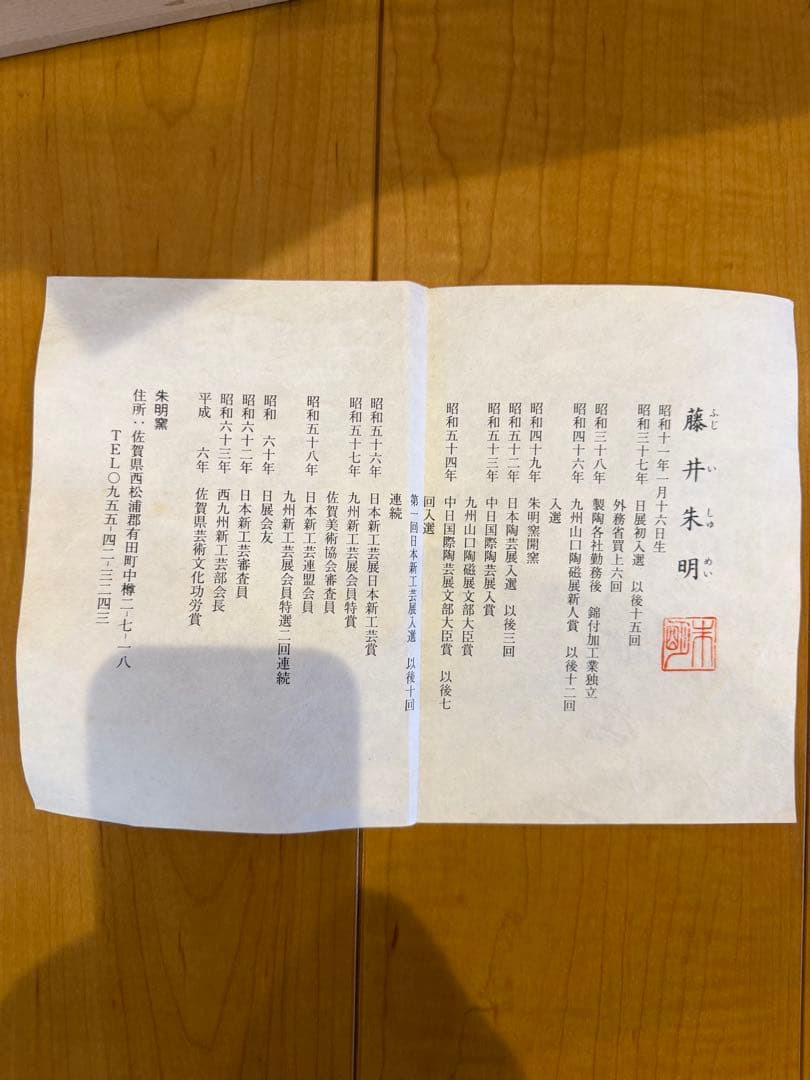 藤井朱明
ふじ い しゅ めい
昭和十一年一月十六日生
昭和三十七年 日展初入選 以後十五回
外務省買上六回
昭和三十八年 製陶各社勤務後 錦付加工業独立
昭和四十六年 九州山口陶磁展新人賞 以後十二回
入選
昭和四十九年 朱明窯開窯
昭和五十二年 日本陶芸展入選 以後三回
昭和五十三年 中日国際陶芸展入賞
九州山口陶磁展文部大臣賞
昭和五十四年 中日国際陶芸展文部大臣賞 以後七
回入選
第一回日本新工芸展入選 以後十回
連続
昭和五十六年 日本新工芸展日本新工芸賞
昭和五十七年 九州新工芸展会員特賞
佐賀美術協会審査員
昭和五十八年 日本新工芸連盟会員
九州新工芸展会員特選二回連続
昭和 六十年 日展会友
昭和六十二年 日本新工芸審査員
昭和六十三年 西九州新工芸部会長
平成 六年 佐賀県芸術文化功労賞
朱明窯
住所：佐賀県西松浦郡有田町中樽二-七-一八
TEL〇九五五-四二-三二四三
朱明